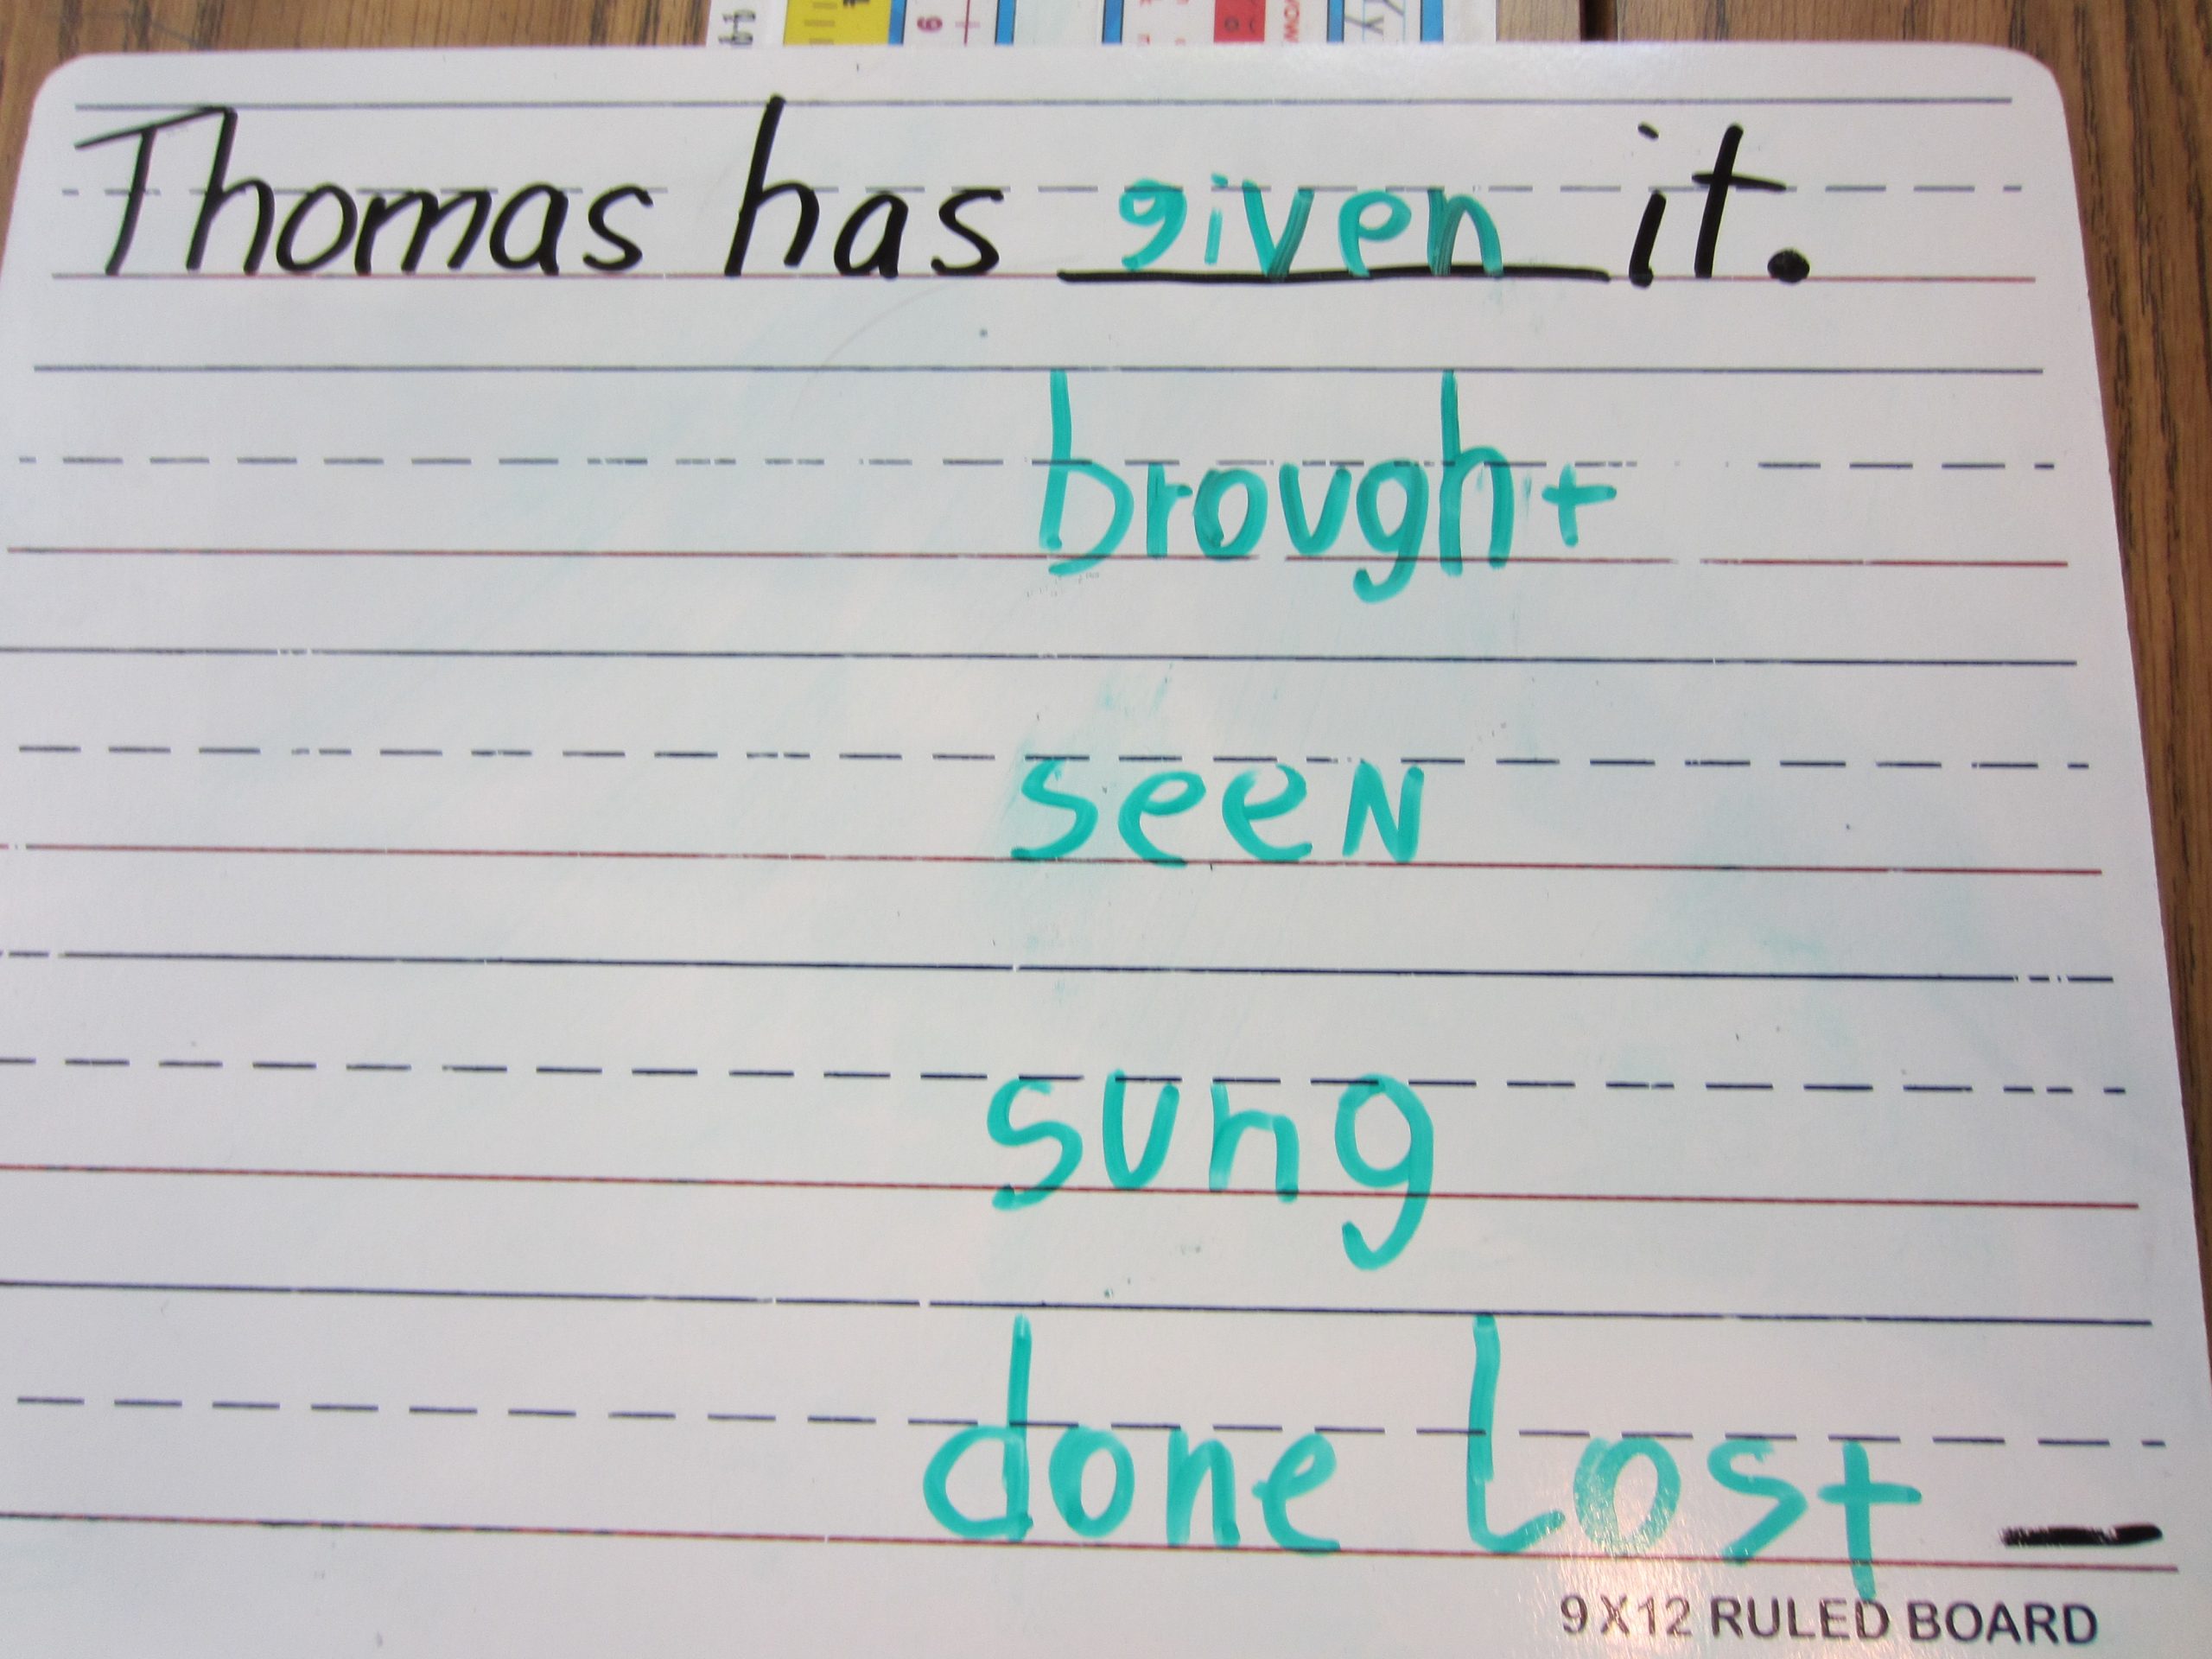 Thomas has given it.
brought
seen
sung
done lost _
9X12 RULED BOARD